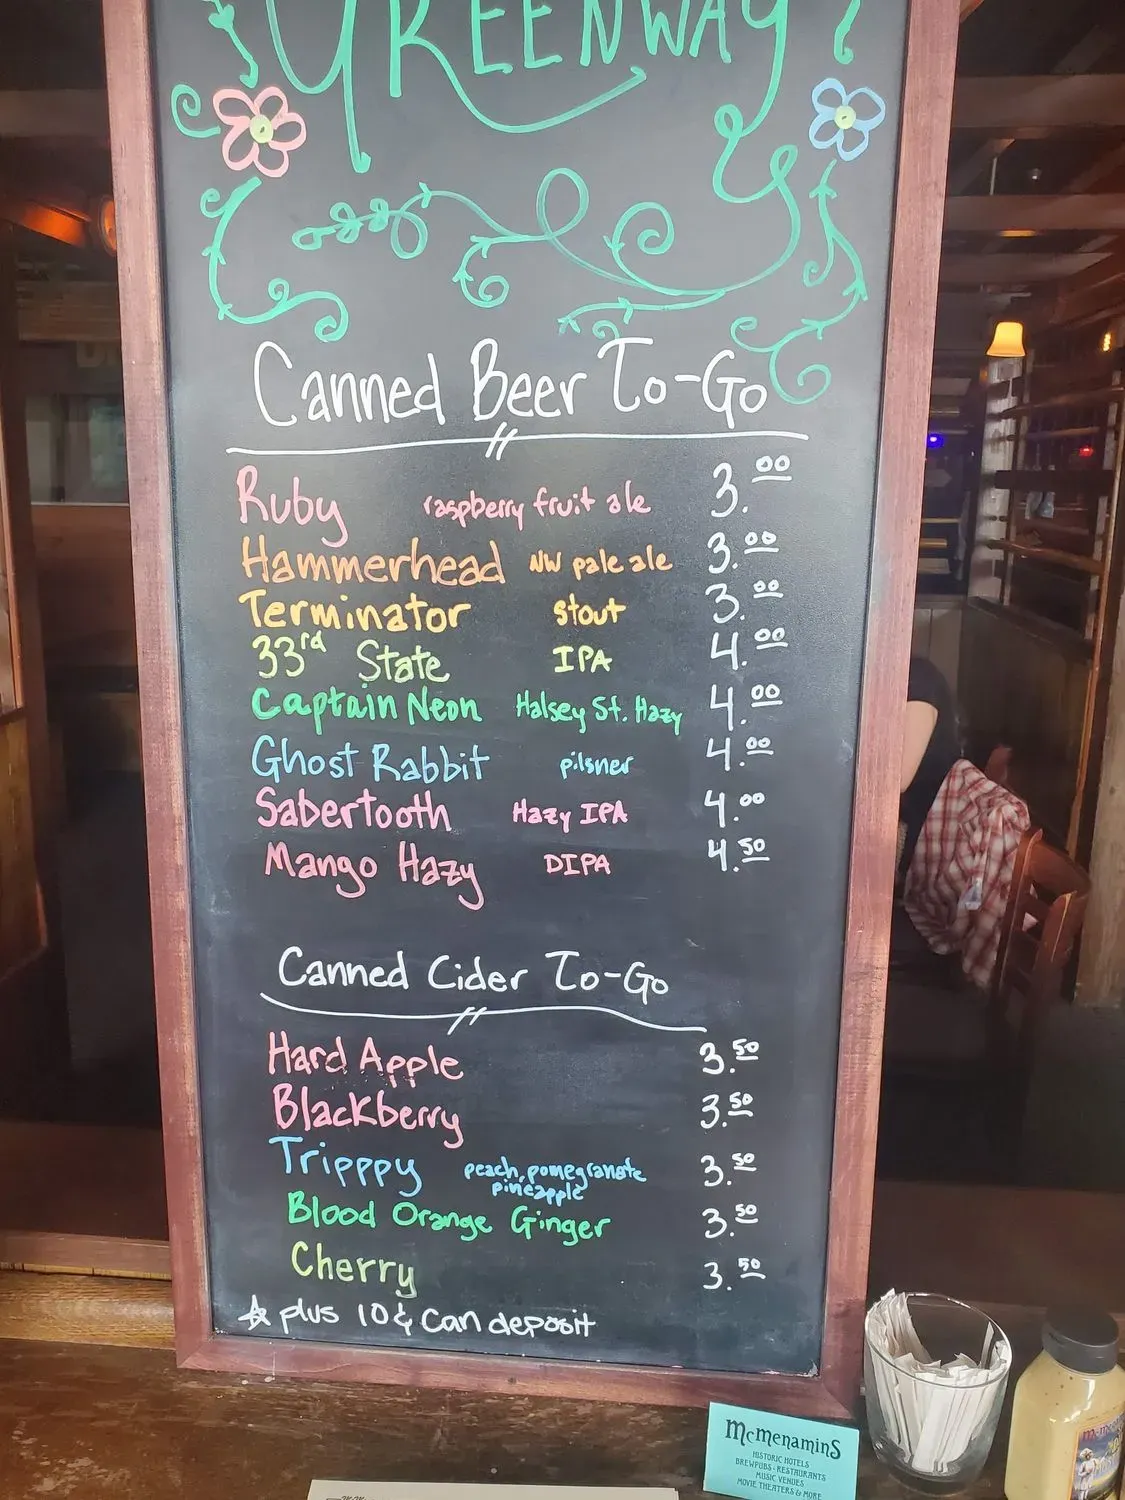 GREENWAY
Canned Beer To-Go
Ruby raspberry fruit ale 3.00
Hammerhead NW pale ale 3.00
Terminator stout 3.00
33rd State IPA 4.00
Captain Neon Halsey St. Hazy 4.00
Ghost Rabbit pilsner 4.00
Sabertooth Hazy IPA 4.00
Mango Hazy DIPA 4.50
Canned Cider To-Go
Hard Apple 3.50
Blackberry 3.50
Tripppy peach, pomegranate 3.50
pineapple
Blood Orange Ginger 3.50
Cherry 3.50
☆ plus 10¢ can deposit
McMenamins
HISTORIC HOTELS
BREWPUBS • RESTAURANTS
MUSIC VENUES
MOVIE THEATERS & MORE